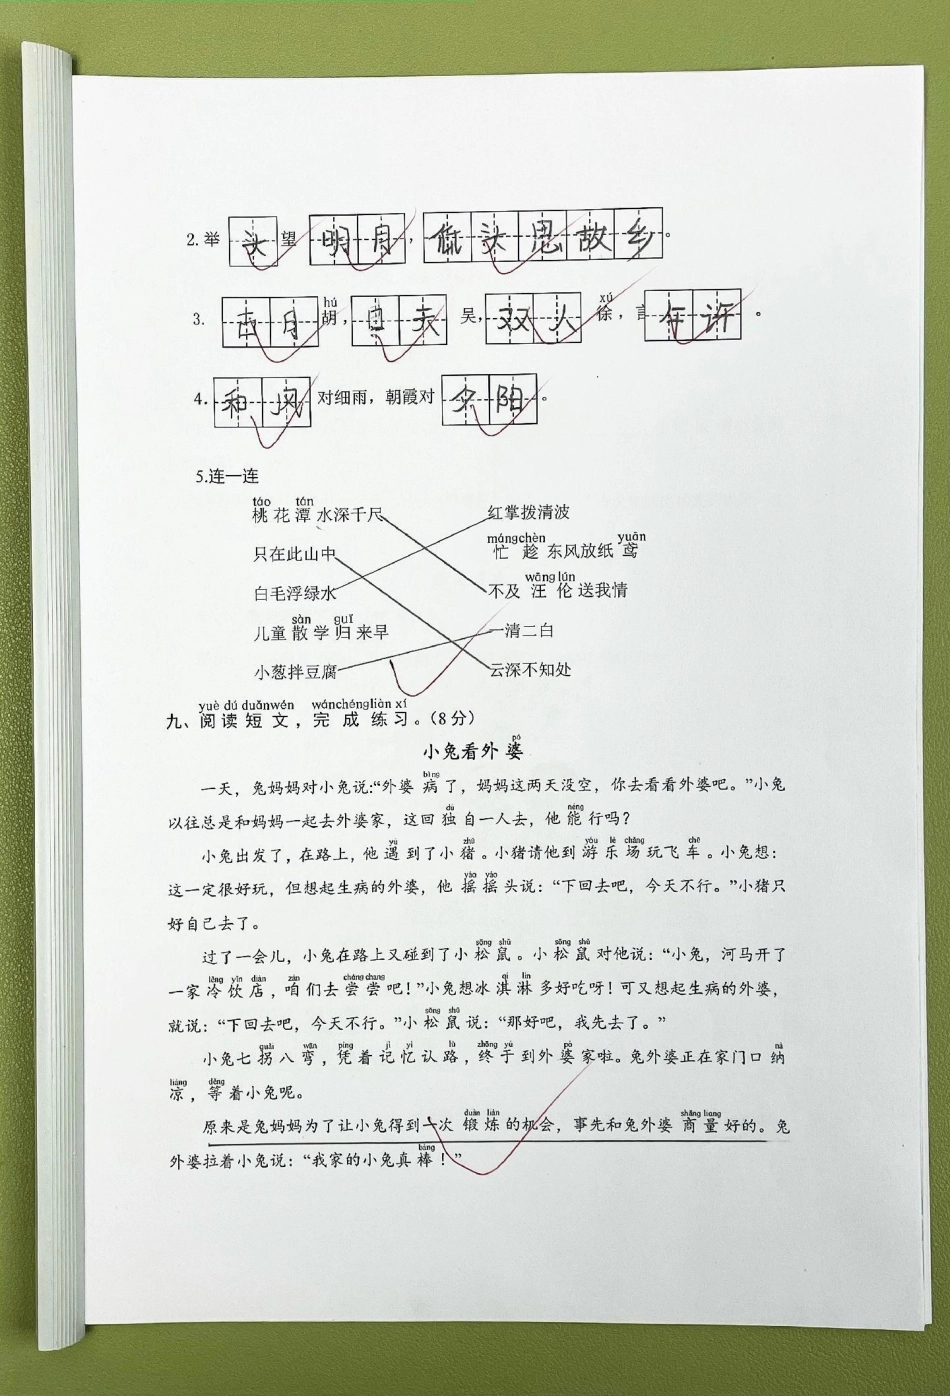 2.举头望明月，低头思故乡。
hú xú
3. 古月胡，口天吴，双人徐，言午许。
4.和风对细雨，朝霞对夕阳。
5.连一连
táo tán
桃花潭水深千尺 红掌拨清波
mángchèn yuān
只在此山中 忙趁东风放纸鸢
wānglún
白毛浮绿水 不及汪伦送我情
sàn guī
儿童散学归来早 一清二白
小葱拌豆腐 云深不知处
yuè dú duǎnwén wánchéngliàn xí
九、阅读短文，完成练习。（8分）
pó
小兔看外婆
bìng
一天，兔妈妈对小兔说：“外婆病了，妈妈这两天没空，你去看看外婆吧。”小兔
dú néng
以往总是和妈妈一起去外婆家，这回独自一人去，他能行吗？
yù zhū yóu lè chǎng chē
小兔出发了，在路上，他遇到了小猪。小猪请他到游乐场玩飞车。小兔想：
yáo yáo
这一定很好玩，但想起生病的外婆，他摇摇头说：“下回去吧，今天不行。”小猪只
好自己去了。
sōng shǔ sōng shǔ
过了一会儿，小兔在路上又碰到了小松鼠。小松鼠对他说：“小兔，河马开了
lěng yǐn diàn zán cháng chang qí lín
一家冷饮店，咱们去尝尝吧！”小兔想冰淇淋多好吃呀！可又想起生病的外婆，
sōng shǔ
就说：“下回去吧，今天不行。”小松鼠说：“那好吧，我先去了。”
guǎi wān píng jì yì lù zhōng yú pó nà
小兔七拐八弯，凭着记忆认路，终于到外婆家啦。兔外婆正在家门口纳
liáng děng
凉，等着小兔呢。
duàn liàn shāng liang
原来是兔妈妈为了让小兔得到一次锻炼的机会，事先和兔外婆商量好的。兔
bàng
外婆拉着小兔说：“我家的小兔真棒！”